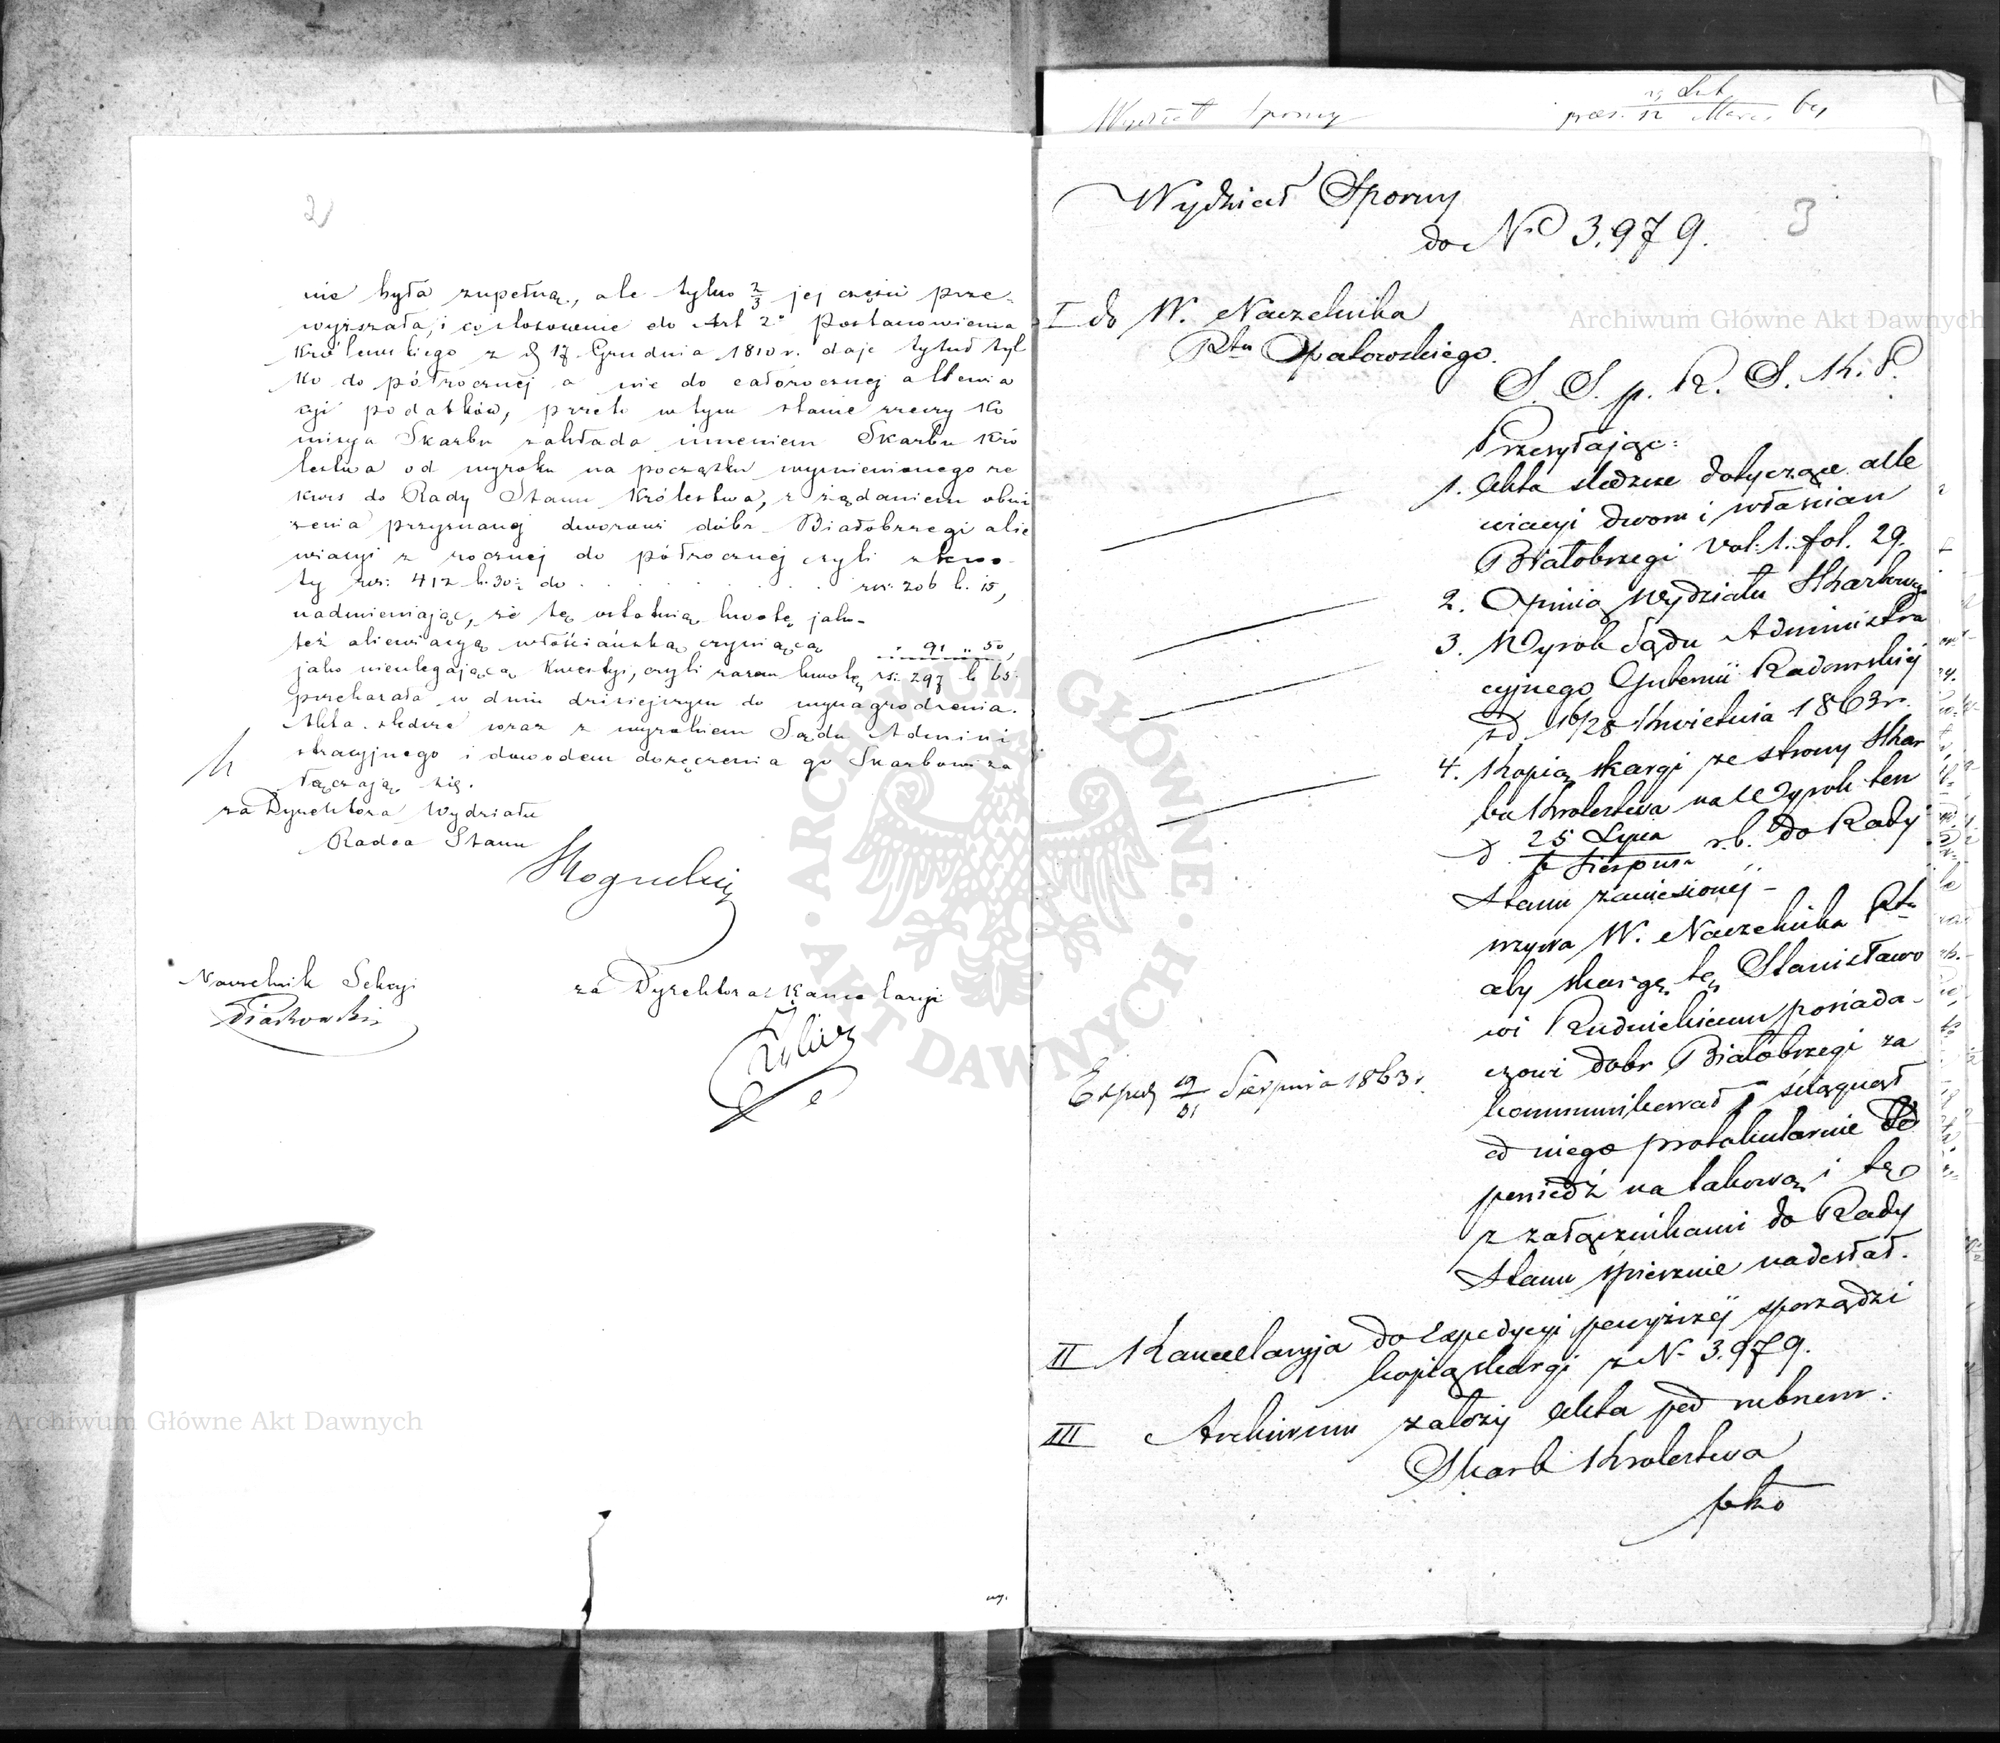 2
nie była zupełną, ale tylko 2/3 jej części prze-
wyższała, i co stosownie do Art 2° Postanowienia
Królewskiego z d 17 Grudnia 1810 r. daje tytuł tyl
ko do półrocznej a nie do całorocznej allewia
cyi podatków, przeto w tym stanie rzeczy Ko
misya Skarbu zakłada imieniem Skarbu Kró
lestwa od wyroku na początku wymienionego re
kurs do Rady Stanu Królestwa, z żądaniem obni
żenia przyznanej dworowi dóbr Białobrzegi alle
wiacyi z rocznej do półrocznej czyli z kwo
ty rsr: 412 k. 30 1/2 do . . . . . . . . rsr. 206 k. 15,
nadmieniając, że tę ostatnią kwotę jako-
też aliewiacyą włościańską czyniącą . 91 „ 50,
jako nieulegającą kwestyi, czyli razem kwotę rs: 297 k 65
przekazała w dniu dzisiejszym do wynagrodzenia.
Akta śledcze wraz z wyrokiem Sądu Admini
stracyjnego i dowodem doręczenia go Skarbowi za
łączają się.
za Dyrektora Wydziału
Radca Stanu
Naczelnik Sekcyi
Piaskowski
za Dyrektora Kancelaryi
wy.
Wydział Sporny
Wydział Sporny
do No 3.979.
3
I do W. Naczelnika
Ptu Opatowskiego.
S. S. p. K. S. K. P.
Przesyłając:
1. Akta śledcze dotyczące alle
wiacyi dwom i włościan
Białobrzegi vol: 1. fol. 29.
2. Opinią Wydziału Skarbowego
3. Wyrok Sądu Administra
cyjnego Gubernii Radomskiej
z d 16/28 Kwietnia 1863 r.
4. Kopią skargi ze strony Skar
bu Królestwa na Wyrok ten
d 25 Lipca / 6 Sierpnia r. b. do Rady
Stanu zaniesionej –
wzywa W. Naczelnika Ptu
aby skargę tę Stanisławo
wi Rudnickiemu posiada-
czowi dobr Białobrzegi za
kommunikował, ściągnął
od niego protokularnie Od
powiedź na takową i tę
z załącznikami do Rady
Stanu śpiesznie nadesłał.
Exped 19/31 Sierpnia 1863 r.
II Kancelaryja do expedycyi powyższej sporządzi
kopią skargi z N. 3.979.
III Archiwum założy Akta pod rubrum:
Skarb Królestwa
Archiwum Główne Akt Dawnych
Archiwum Główne Akt Dawnych
ARCHIWUM GŁÓWNE AKT DAWNYCH